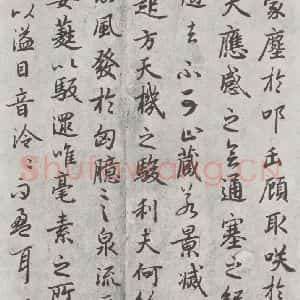 蒙塵於叩缶顧取咲於
夫應感之會通塞之紀
遏去不可止藏若景滅
起方天機之駿利夫何紛
風發於匈臆言泉流
蕤以馺遝唯毫素之所
以溢目音泠〻而盈耳
Shufawang.CN